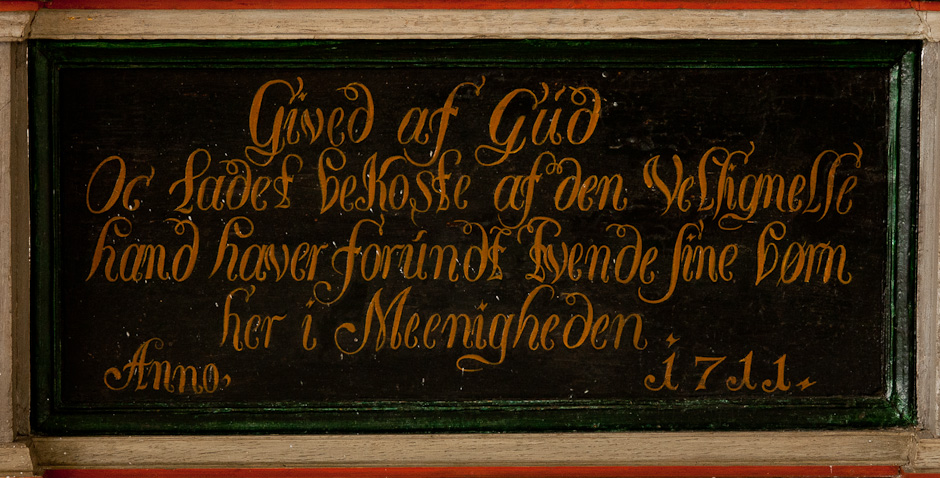 Gived af Gùd
Oc Ladet bekoste af den Velsignelse
hand haver forúndt tvende sine børn
her i Meenigheden
Anno, 1711.